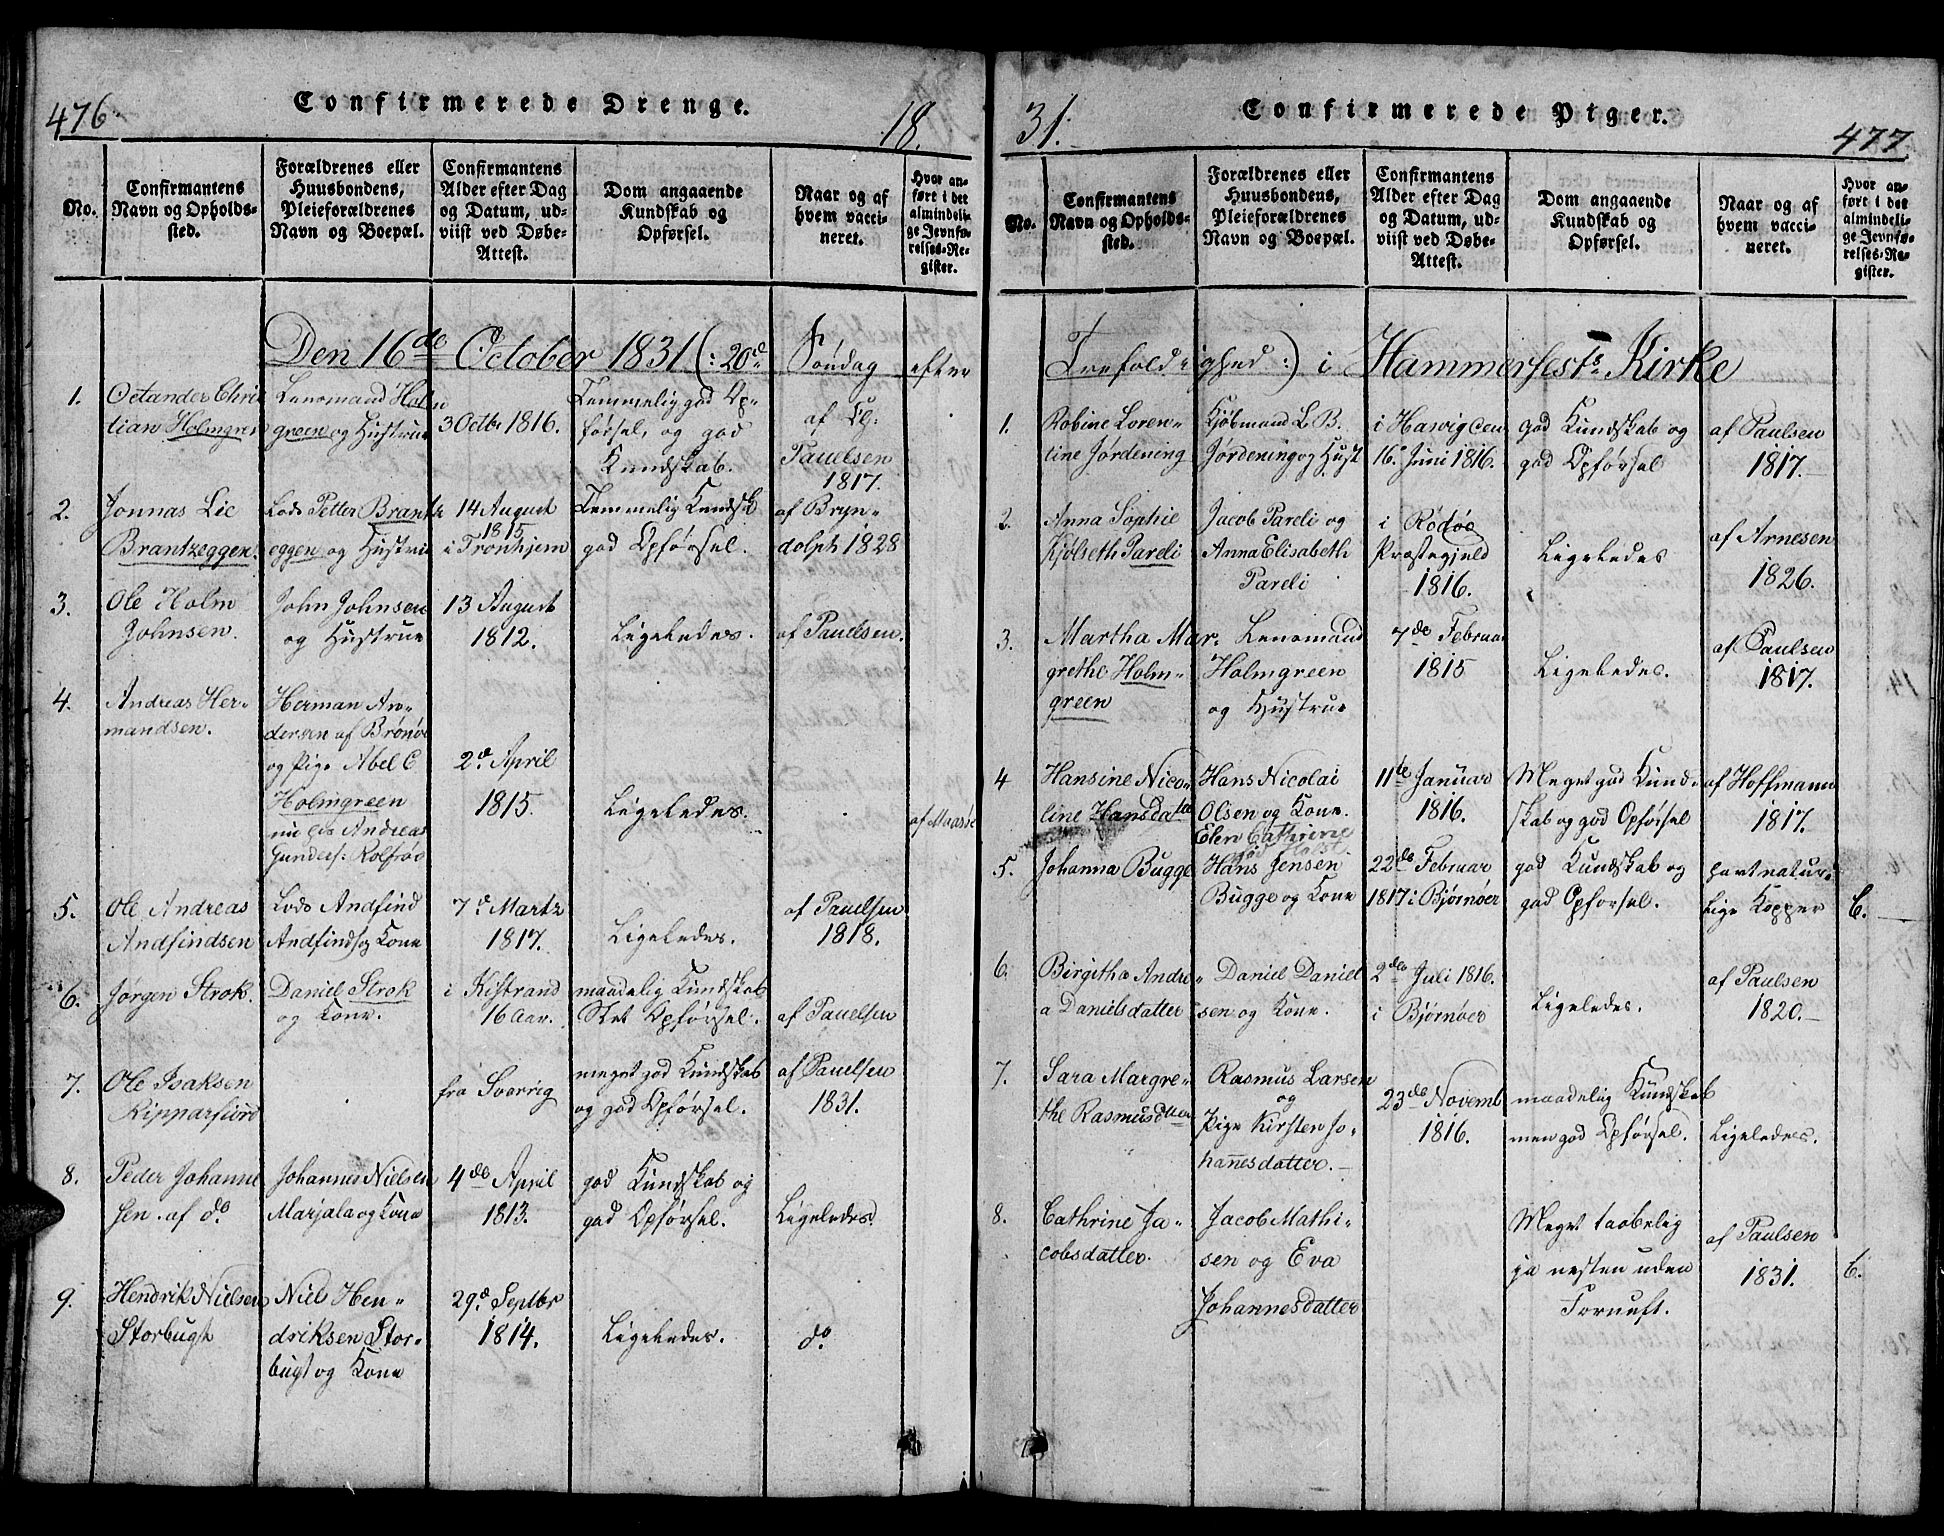 476.
Confirmerede Drenge.
18.
No.
Confirmantens
Navn og Opholds-
sted.
Forældrenes eller
Huusbondens,
Pleieforældrenes
Navn og Boepæl.
Confirmantens
Alder efter Dag
og Datum, ud-
viist ved Døbe-
Attest.
Dom angaaende
Kundskab og
Opførsel.
Naar og af
hvem vacci-
neret.
Hvor an-
ført i det
almindeli-
ge Jevnfø-
relses-Re-
gister.
Den 16de October 1831 (: 20de Søndag efter
1.
Octander Chris
tian Holmgren
Lensmand Holm
green og Hustrue
3 Octbr 1816.
Temmelig god Op-
førsel, og god
Kundskab.
af Kl:
Pauelsen
1817.
2.
Jonnas Lie
Brantzeggen.
Lods Petter Brantz
eggen og Hustrue
14 August
1815
i Tronhjem
Temmelig Kundsk
god Opførsel.
af Bryn-
dolph 1828
3.
Ole Holm
Johnsen.
John Johnsen
og Hustrue
13 August
1812.
Ligeledes.
af Pauelsen.
4.
Andreas Her-
mandsen.
Herman An-
dersen af Brønøe
og Pige Abel C
Holmgreen
nu gis Andreas
Gunders: Rolfsøe
2d April
1815.
Ligeledes.
af Maasøe
5.
Ole Andreas
Andfindsen
Lods Andfind
Andfinds og Kone
7d Martz
1817.
Ligeledes.
af Pauelsen
1818.
6.
Jørgen Strok.
Daniel Strok
og Kone.
i Kistrand
16 Aar.
maadelig Kundskab
Slet Opførsel.
af Pauelsen
7.
Ole Isaksen
Ripnarfiord
fra Sverrig
meget god Kundskab
og god Opførsel.
af Pauelsen
1831.
8.
Peder Johanne
sen. af do
Johannes Nielsen
Marjala og Kone
4de April
1813.
god Kundskab og
god Opførsel.
Ligeledes.
9.
Hendrik Nielsen
Storbugt
Niels Hen-
driksen Stor-
bugt og Kone
29d Septbr
1814.
Ligeledes.
do.
31.
Confirmerede Piger.
477.
No.
Confirmantens
Navn og Opholds-
sted.
Forældrenes eller
Huusbondens,
Pleieforældrenes
Navn og Boepæl.
Confirmantens
Alder efter Dag
og Datum, ud-
viist ved Døbe-
Attest.
Dom angaaende
Kundskab og
Opførsel.
Naar og af
hvem vacci-
neret.
Hvor an-
ført i det
almindeli-
ge Jevnfø-
relses-Re-
gister.
Trefoldighed:) i Hammerfests Kirke
1.
Robine Loren-
tine Jørdening
Kjøbmand L. B.
Jørdening og Hust
i Hawigoen
16de Juni 1816.
god Kundskab og
god Opførsel
af Paulsen
1817.
2.
Anna Sophie
Kjølseth Pareli
Jacob Pareli og
Anna Elisabeth
Pareli
i Rødøe
Præstegjeld
1816.
Ligeledes
af Arnesen
1826.
3.
Martha Mar-
grethe Holm-
green
Lensmand
Holmgreen
og Hustrue
7de Februar
1815
Ligeledes.
af Paulsen
1817.
4
Hansine Nico-
line Hansdatter
Hans Nicolai
Olsen og Kone.
Elen Cathrine
11te Januar
1816.
Meget god Kund-
skab og god Opførsel
af Hoffmann
1817.
5.
Johanna Bugge
Hans Jensen
Bugge og Kone
22de Februar
1817 i Bjørnøer
god Kundskab og
god Opførsel.
havt natur-
lige Kopper
C.
6.
Birgitha Andre
a Danielsdatter
Daniel Daniel
sen og Kone.
2den Juli 1816.
i Bjørnøer
Ligeledes.
af Paulsen
1820.
7.
Sara Margre-
the Rasmusdtter
Rasmus Larsen
og
Pige Kirsten Jo-
hannesdatter.
23de Novemb
1816.
maadelig Kundskab
men god Opførsel.
Ligeledes.
8.
Cathrine Ja-
cobsdatter.
Jacob Mathi-
sen og Eva
Johannesdatter
Meget taabelig
ja næsten uden
Fornuft.
af Paulsen
1831.
C.